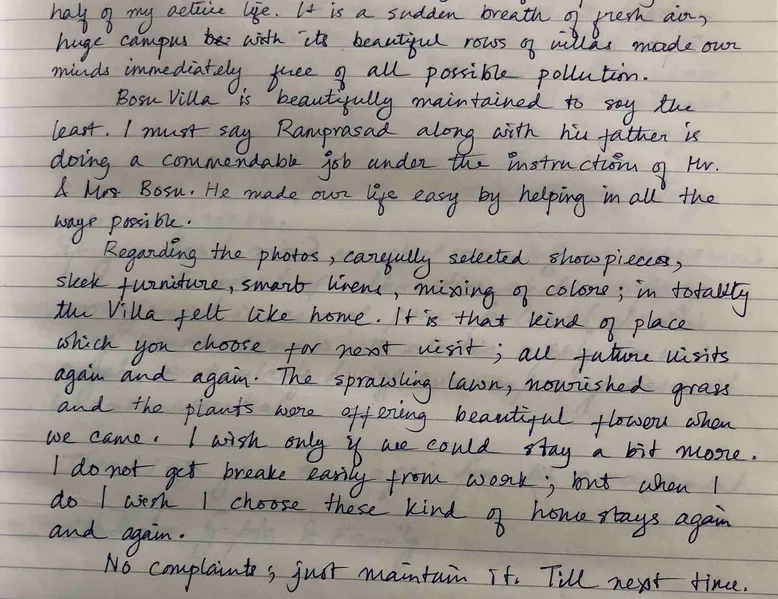 half of my active life. It is a sudden breath of fresh air,
huge campus with its beautiful rows of villas made our
minds immediately free of all possible pollution.
Bosu Villa is beautifully maintained to say the
least. I must say Ramprasad along with his father is
doing a commendable job under the instructions of Mr.
& Mrs Bosu. He made our life easy by helping in all the
ways possible.
Regarding the photos, carefully selected showpieces,
sleek furniture, smart linens, mixing of colors; in totality
the Villa felt like home. It is that kind of place
which you choose for next visit; all future visits
again and again. The sprawling lawn, nourished grass
and the plants were offering beautiful flowers when
we came. I wish only if we could stay a bit more.
I do not get breaks easily from work; but when I
do I wish I choose these kind of home stays again
and again.
No complaints; just maintain it. Till next time.